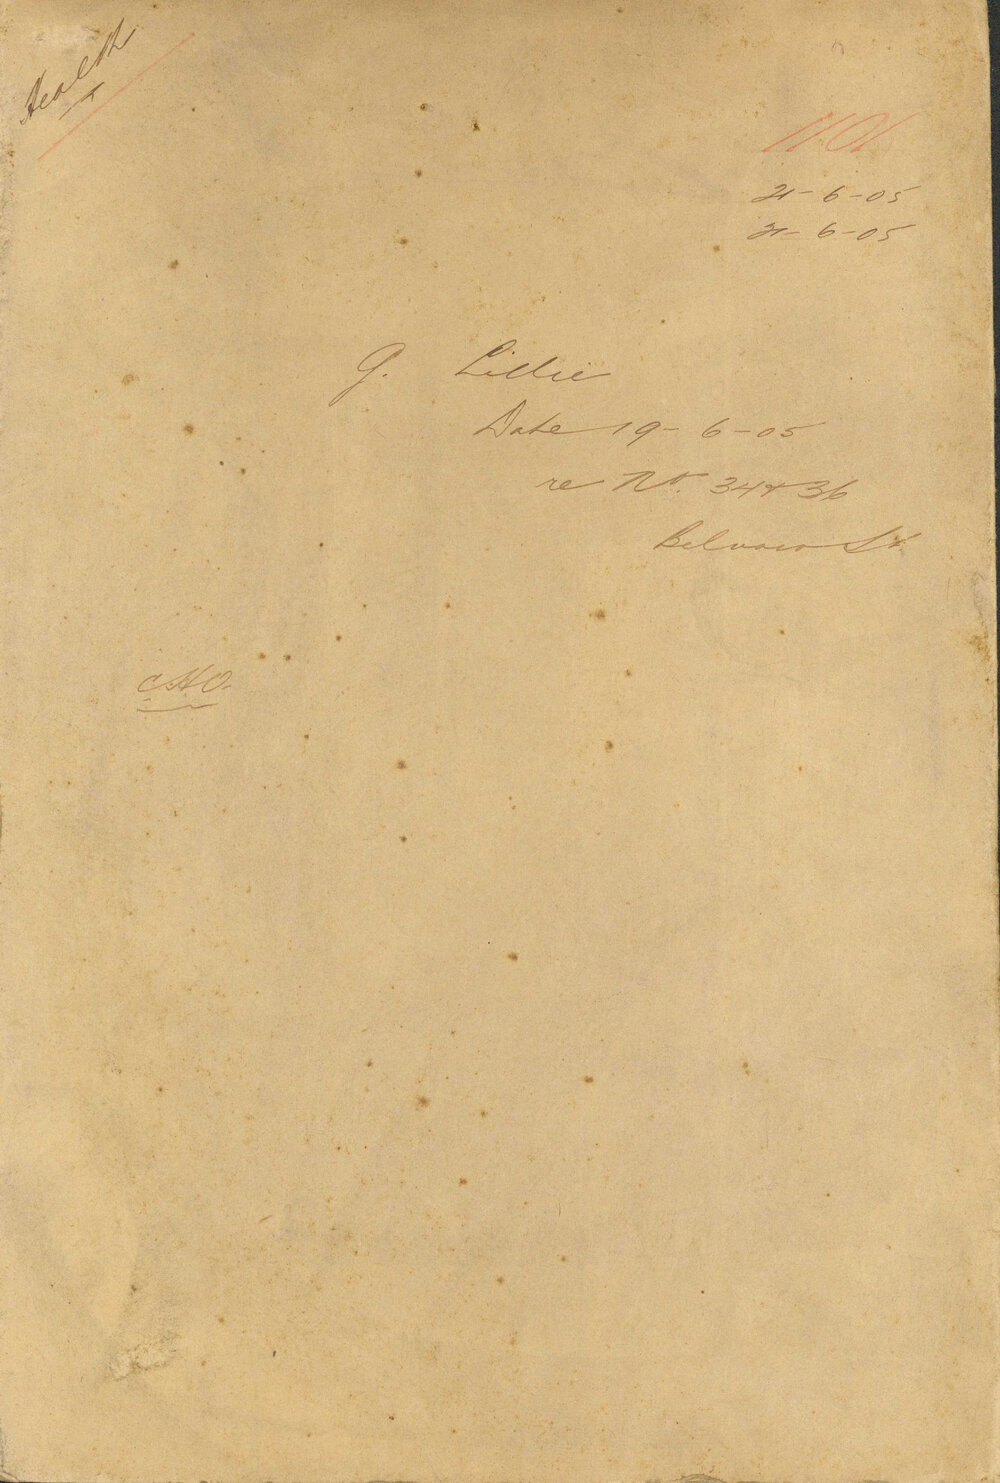 Health
1101
21-6-05
21-6-05
G. Lillie
Date 19-6-05
re No. 34 & 36
Belvoir St
C.H.O.